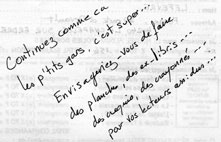 Continuez comme ca
les p'tits gars. C'est super...
Envisageriez-vous de faire
des planches, des ex-libris...
des croquis, des crayonnés...
pour vos lecteurs assidus...